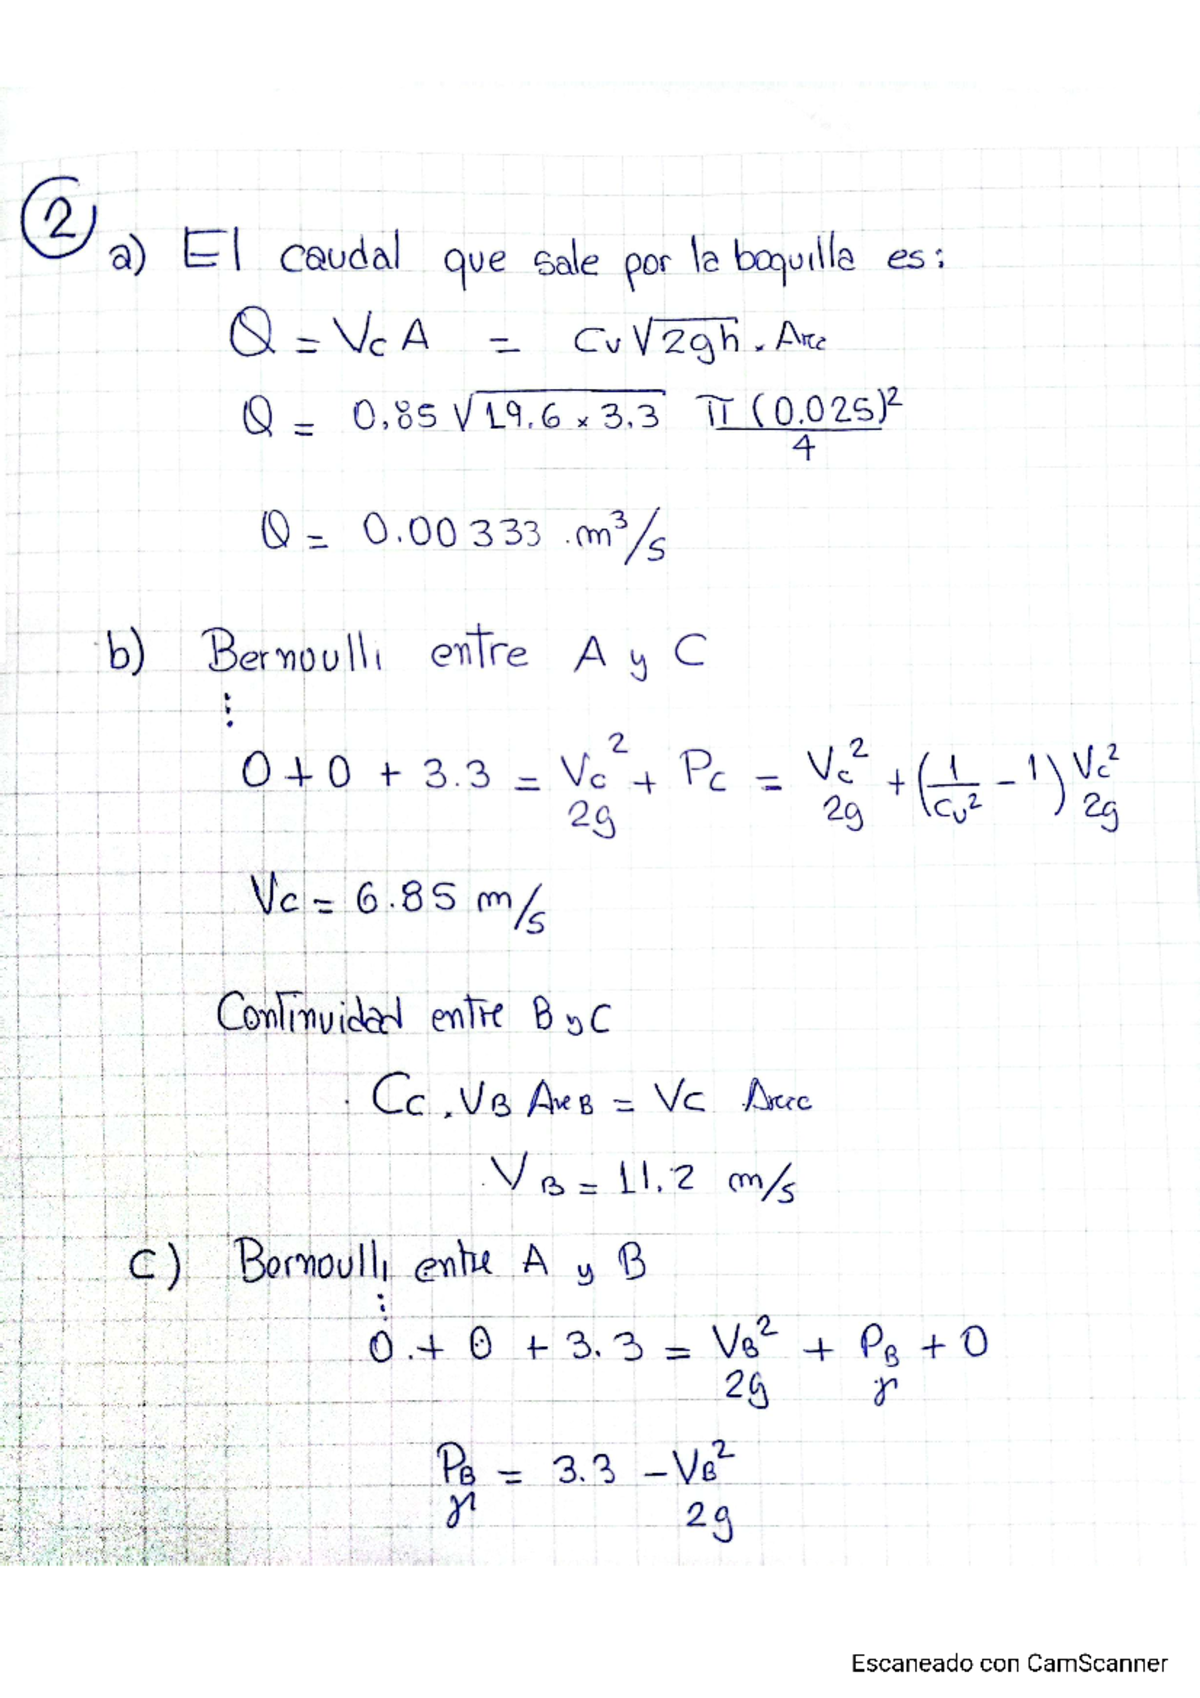 2
a) El caudal que sale por la boquilla es:
Q = Vc A = Cv √2gh . Arc
Q = 0.85 √19.6 x 3.3 π (0.025)² / 4
Q = 0.00333 m³/s
b) Bernoulli entre A y C
⋮
0 + 0 + 3.3 = Vc²/2g + Pc = Vc²/2g + (1/Cv² - 1) Vc²/2g
Vc = 6.85 m/s
Continuidad entre B y C
Cc . VB = Vc
VB = 11.2 m/s
c) Bernoulli entre A y B
⋮
0 + 0 + 3.3 = VB²/2g + PB/γ + 0
PB/γ = 3.3 - VB²/2g
Escaneado con CamScanner